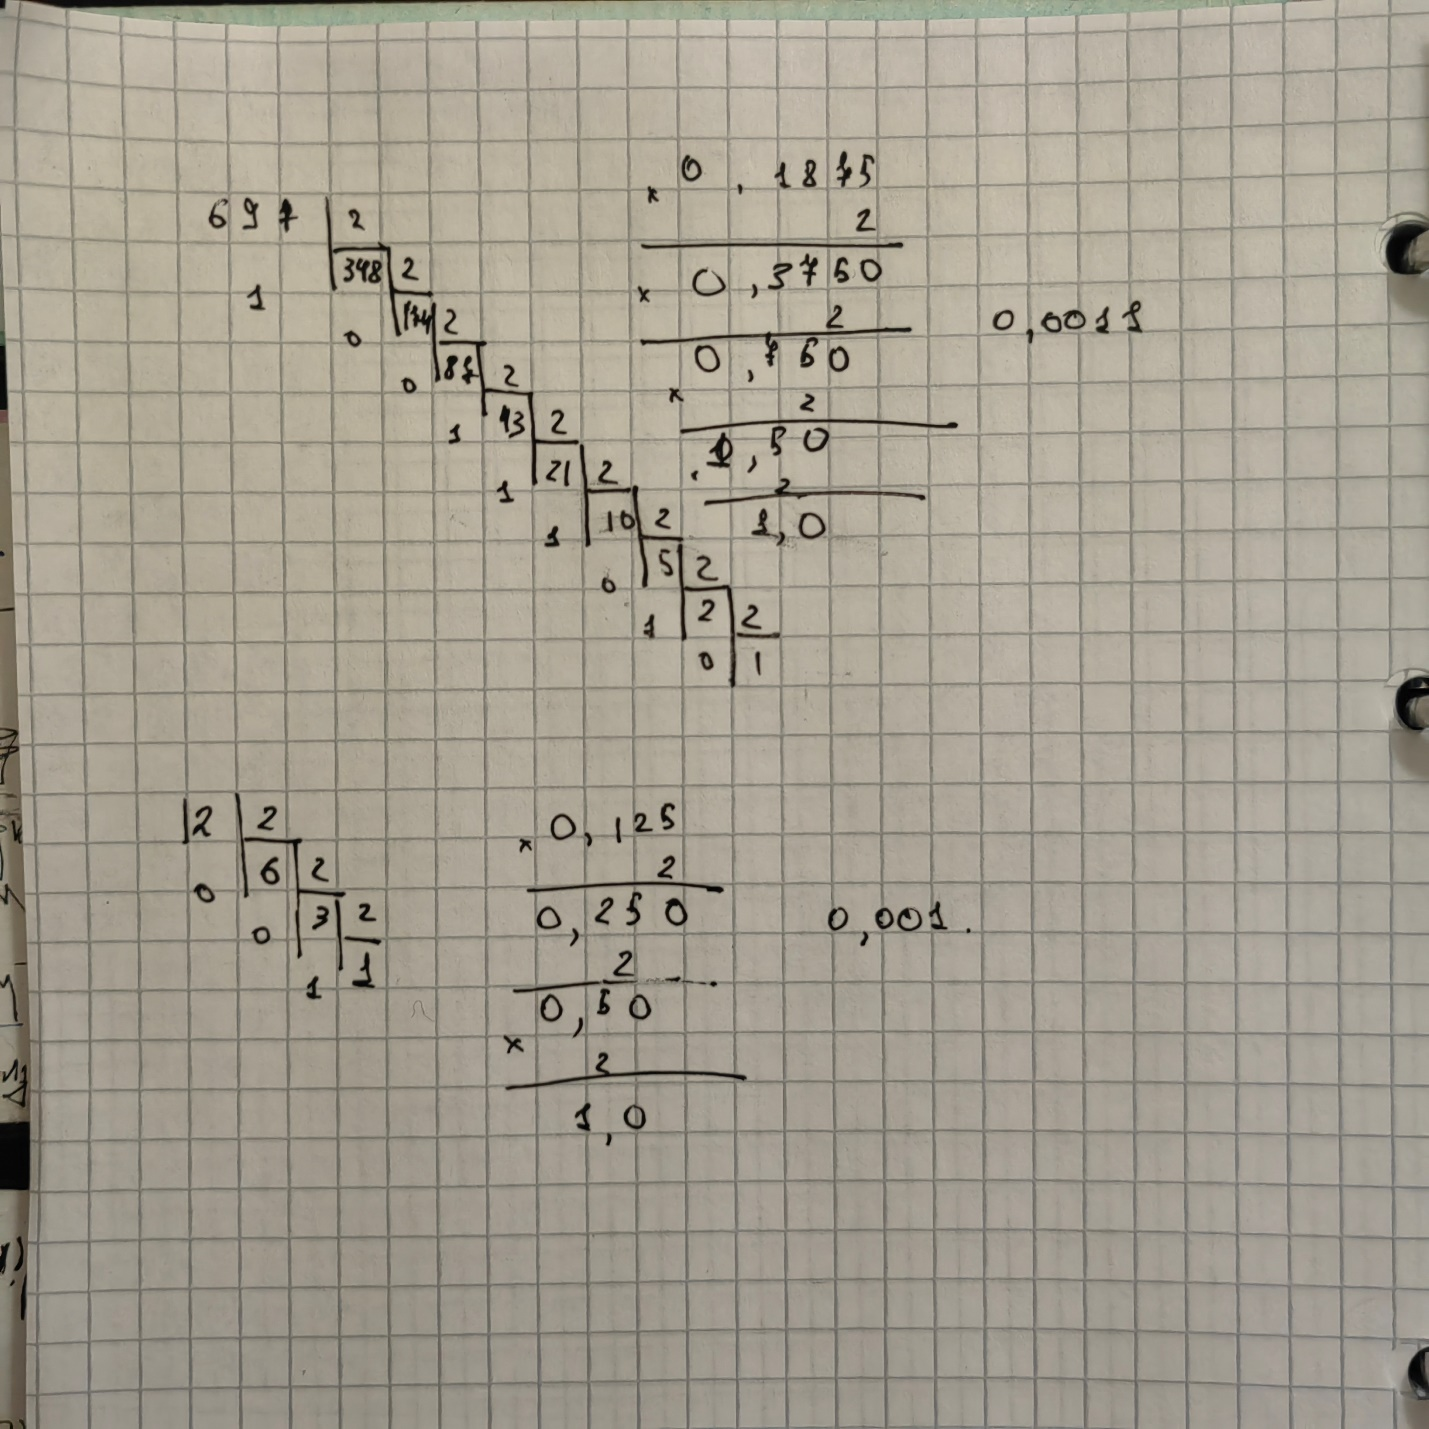 697 2
1 348 2
0 174 2
0 87 2
1 43 2
1 21 2
1 10 2
0 5 2
1 2 2
0 1
x 0,1875
2
x 0,3750
2
0,750
x 2
1,50
2
1,0
0,0011
12 2
0 6 2
0 3 2
1 1
x 0,125
2
0,250
2
0,50
x 2
1,0
0,001.